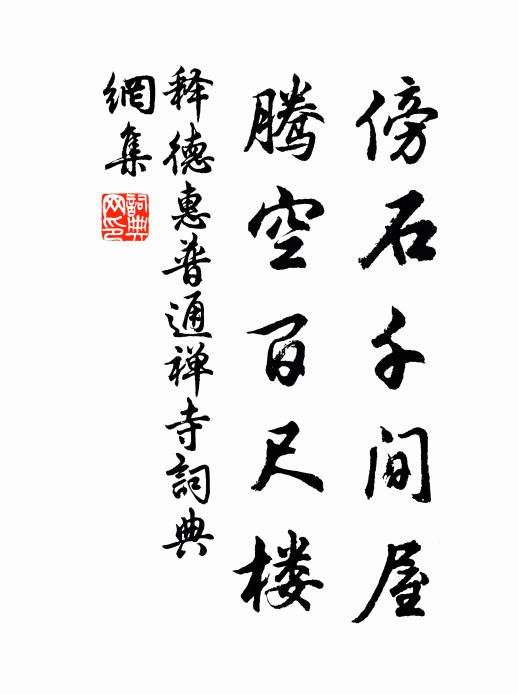 傍石千间屋
腾空百尺楼
释德惠普通禅寺詞典
網集
詞典
网印